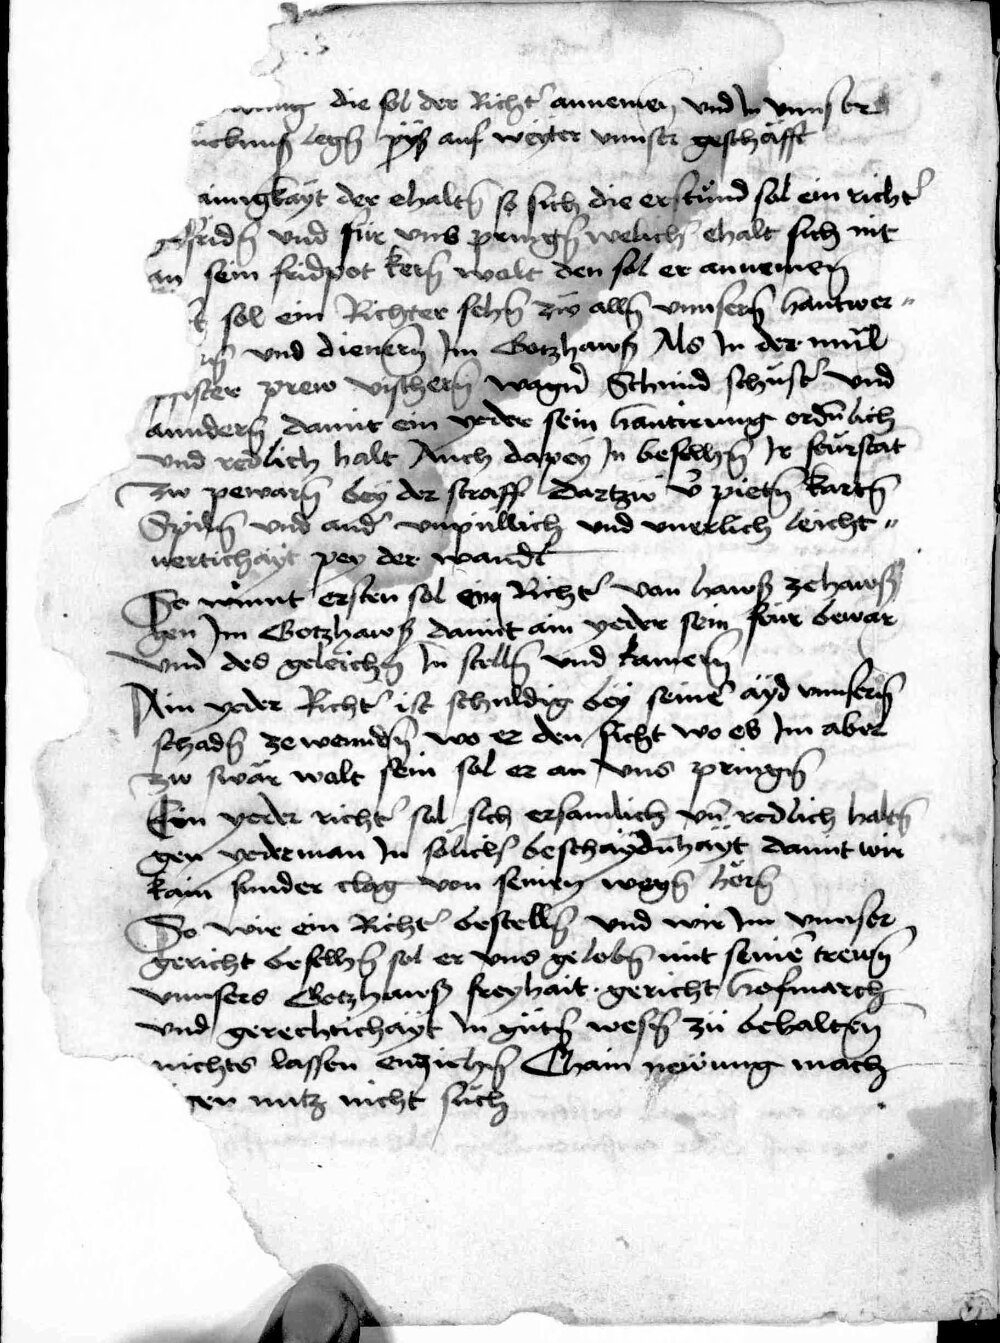 die sol der Richter annemen vnd In vnnser
legen pys auf weyter vnnser geschäfft
ainigkayt der ehalten so sich die erstund sol ein richter
gefriden vnd für vns pringen welich ehalt sich nit
an sein fridpot keren wolt den sol er annemen
sol ein Richter sehen zw allen vnnsern hantwer-
vnd dienern Im Gotzhawß Als In der mül
pfister prew vischern wagner Schmid schuster vnd
anndern damit ein yeder sein hantirung ordenlich
vnd redlich halt Auch dapey In befelhen Ir feurstat
zw pewaren bey der straff Dartzw verpieten karten
Spilen vnd ander vnpillich vnd vnerlich leicht-
uertichayt pey der wandl
So nimt ersten sol ein Richter von hawß ze hawß
gen Im Gotzhawß damit ain yeder sein feur bewar
vnd des geleichen In stellen vnd kamern
Ain yeder Richter ist schuldig bey seinem ayd vnnsern
schaden ze wennden wo er den sicht wo es Im aber
zw swär wolt sein sol er an vns pringen
Ein yeder richter sol sich ersamlich vnd redlich halten
gen yederman In solicher beschaydenhayt damit wir
kain sunder clag von seinen wegen hören
So wir ein Richter bestellen vnd wir Im vnnser
gericht befelhen sol er vns geloben mit seinen trewen
vnnsers Gotzhawß freyhait gericht hofmarch
vnd gerechtichayt In guten wesen zu behalten
nichts lassen entziehen Chain newung mach
nutz nicht such